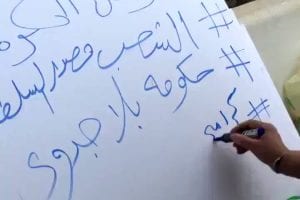 # الشعب مصدر السلط
# حكومه بلا جدوى
# كرامه